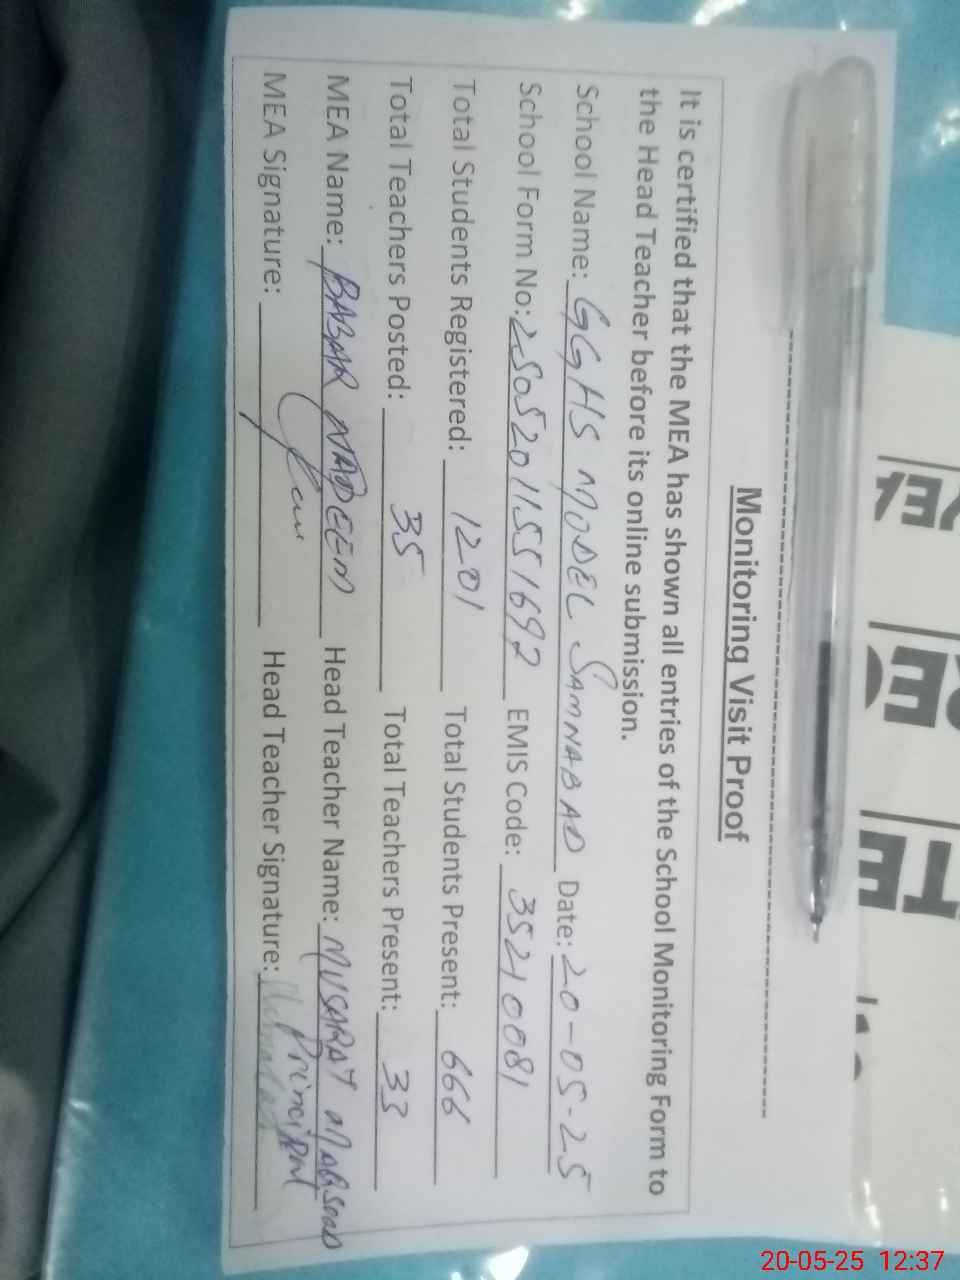 Monitoring Visit Proof
It is certified that the MEA has shown all entries of the School Monitoring Form to
the Head Teacher before its online submission.
School Name: GGHS MODEL SAMNABAD Date: 20-05-25
School Form No: 25052011551692 EMIS Code: 35210081
Total Students Registered: 1201 Total Students Present: 666
Total Teachers Posted: 35 Total Teachers Present: 33
MEA Name: BABAR NADEEM Head Teacher Name: MUSARAT
MEA Signature: Head Teacher Signature: Principal
20-05-25 12:37